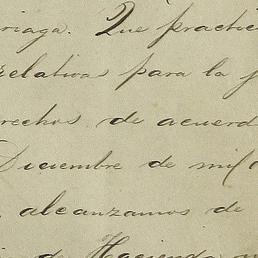 riaga. Que practic
relativas para la
rechos de acuerd
Diciembre de mil
alcanzamos de
de Hacienda